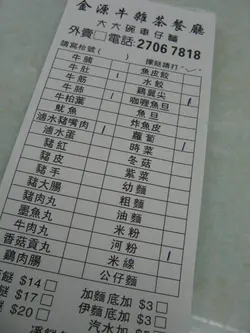 金源牛雜茶餐廳
大大碗車仔麵
外賣 電話:2706 7818
請寫枱號( ) 揀餸請打✓
牛腩 魚皮餃
牛肚 水餃
牛筋 鷄翼尖
牛肺 咖喱魚旦
牛柏葉 魚旦
魷魚 炸魚皮
滷水豬嘴肉 蘿蔔
滷水蛋 時菜
豬紅 冬菇
豬皮 紫菜
豬手 幼麵
豬大腸 粗麵
豬肉丸 油麵
墨魚丸 米粉
牛肉丸 河粉
香菇貢丸 米線
鷄肉腸 公仔麵
餸 $14 加麵底加 $3
餸 $17 伊麵底加 $3
餸 $20 汽水加